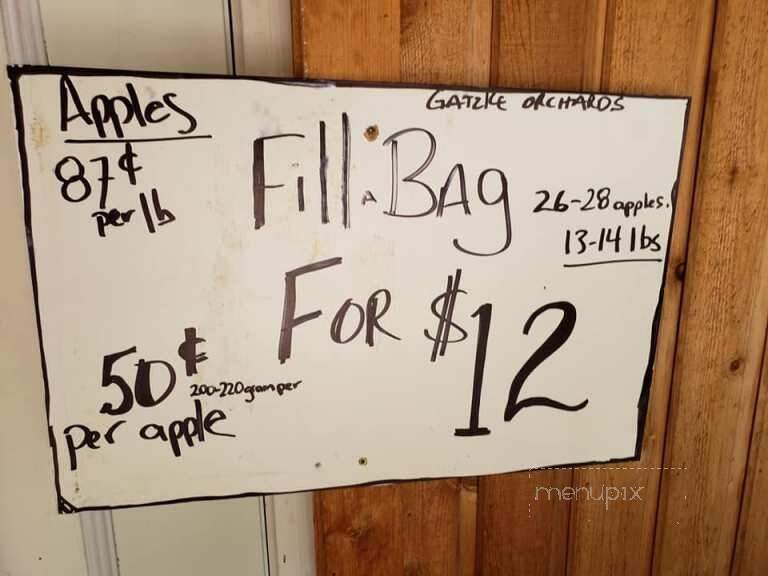 GATZKE ORCHARDS
Apples
87¢
per lb
Fill A BAg
26-28 apples.
13-14 lbs
FOR $12
50¢
200-220 gram per
per apple
menupix